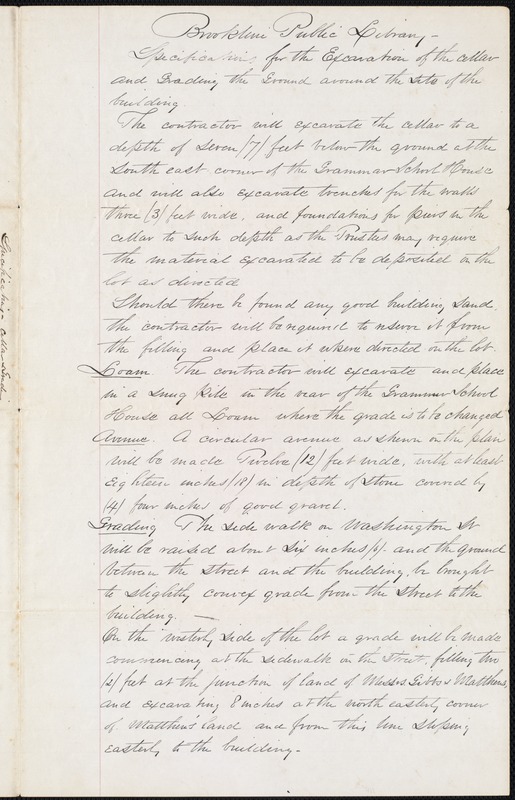 Brookline Public Library -
Specifications for the Excavation of the cellar
and Grading the Ground around the site of the
building.
The contractor will excavate the cellar to a
depth of seven (7) feet below the ground at the
South east corner of the Grammar School House
and will also excavate trenches for the walls
three (3) feet wide, and foundations for piers in the
cellar to such depth as the Trustees may require
the material excavated to be deposited on the
lot as directed
Should there be found any good building sand,
the contractor will be required to reserve it from
the filling and place it where directed on the lot.
Loam The contractor will excavate and place
in a snug pile in the rear of the Grammar School
House all Loam where the grade is to be changed
Avenue. A circular avenue as shewn on the plan
will be made Twelve (12) feet wide, with at least
Eighteen inches (18) in depth of stone covered by
(4) four inches of good gravel.
Grading The side walk on Washington St
will be raised about six inches (6). and the ground
between the street and the building, be brought
to slightly convex grade from the street to the
building. —
On the westerly side of the lot a grade will be made
commencing at the sidewalk on the Street, filling two
(2) feet at the junction of land of Messrs Gibbs & Matthews,
and excavating 8 inches at the north easterly corner
of Matthews' land and from this line sloping
easterly to the building -
Specification